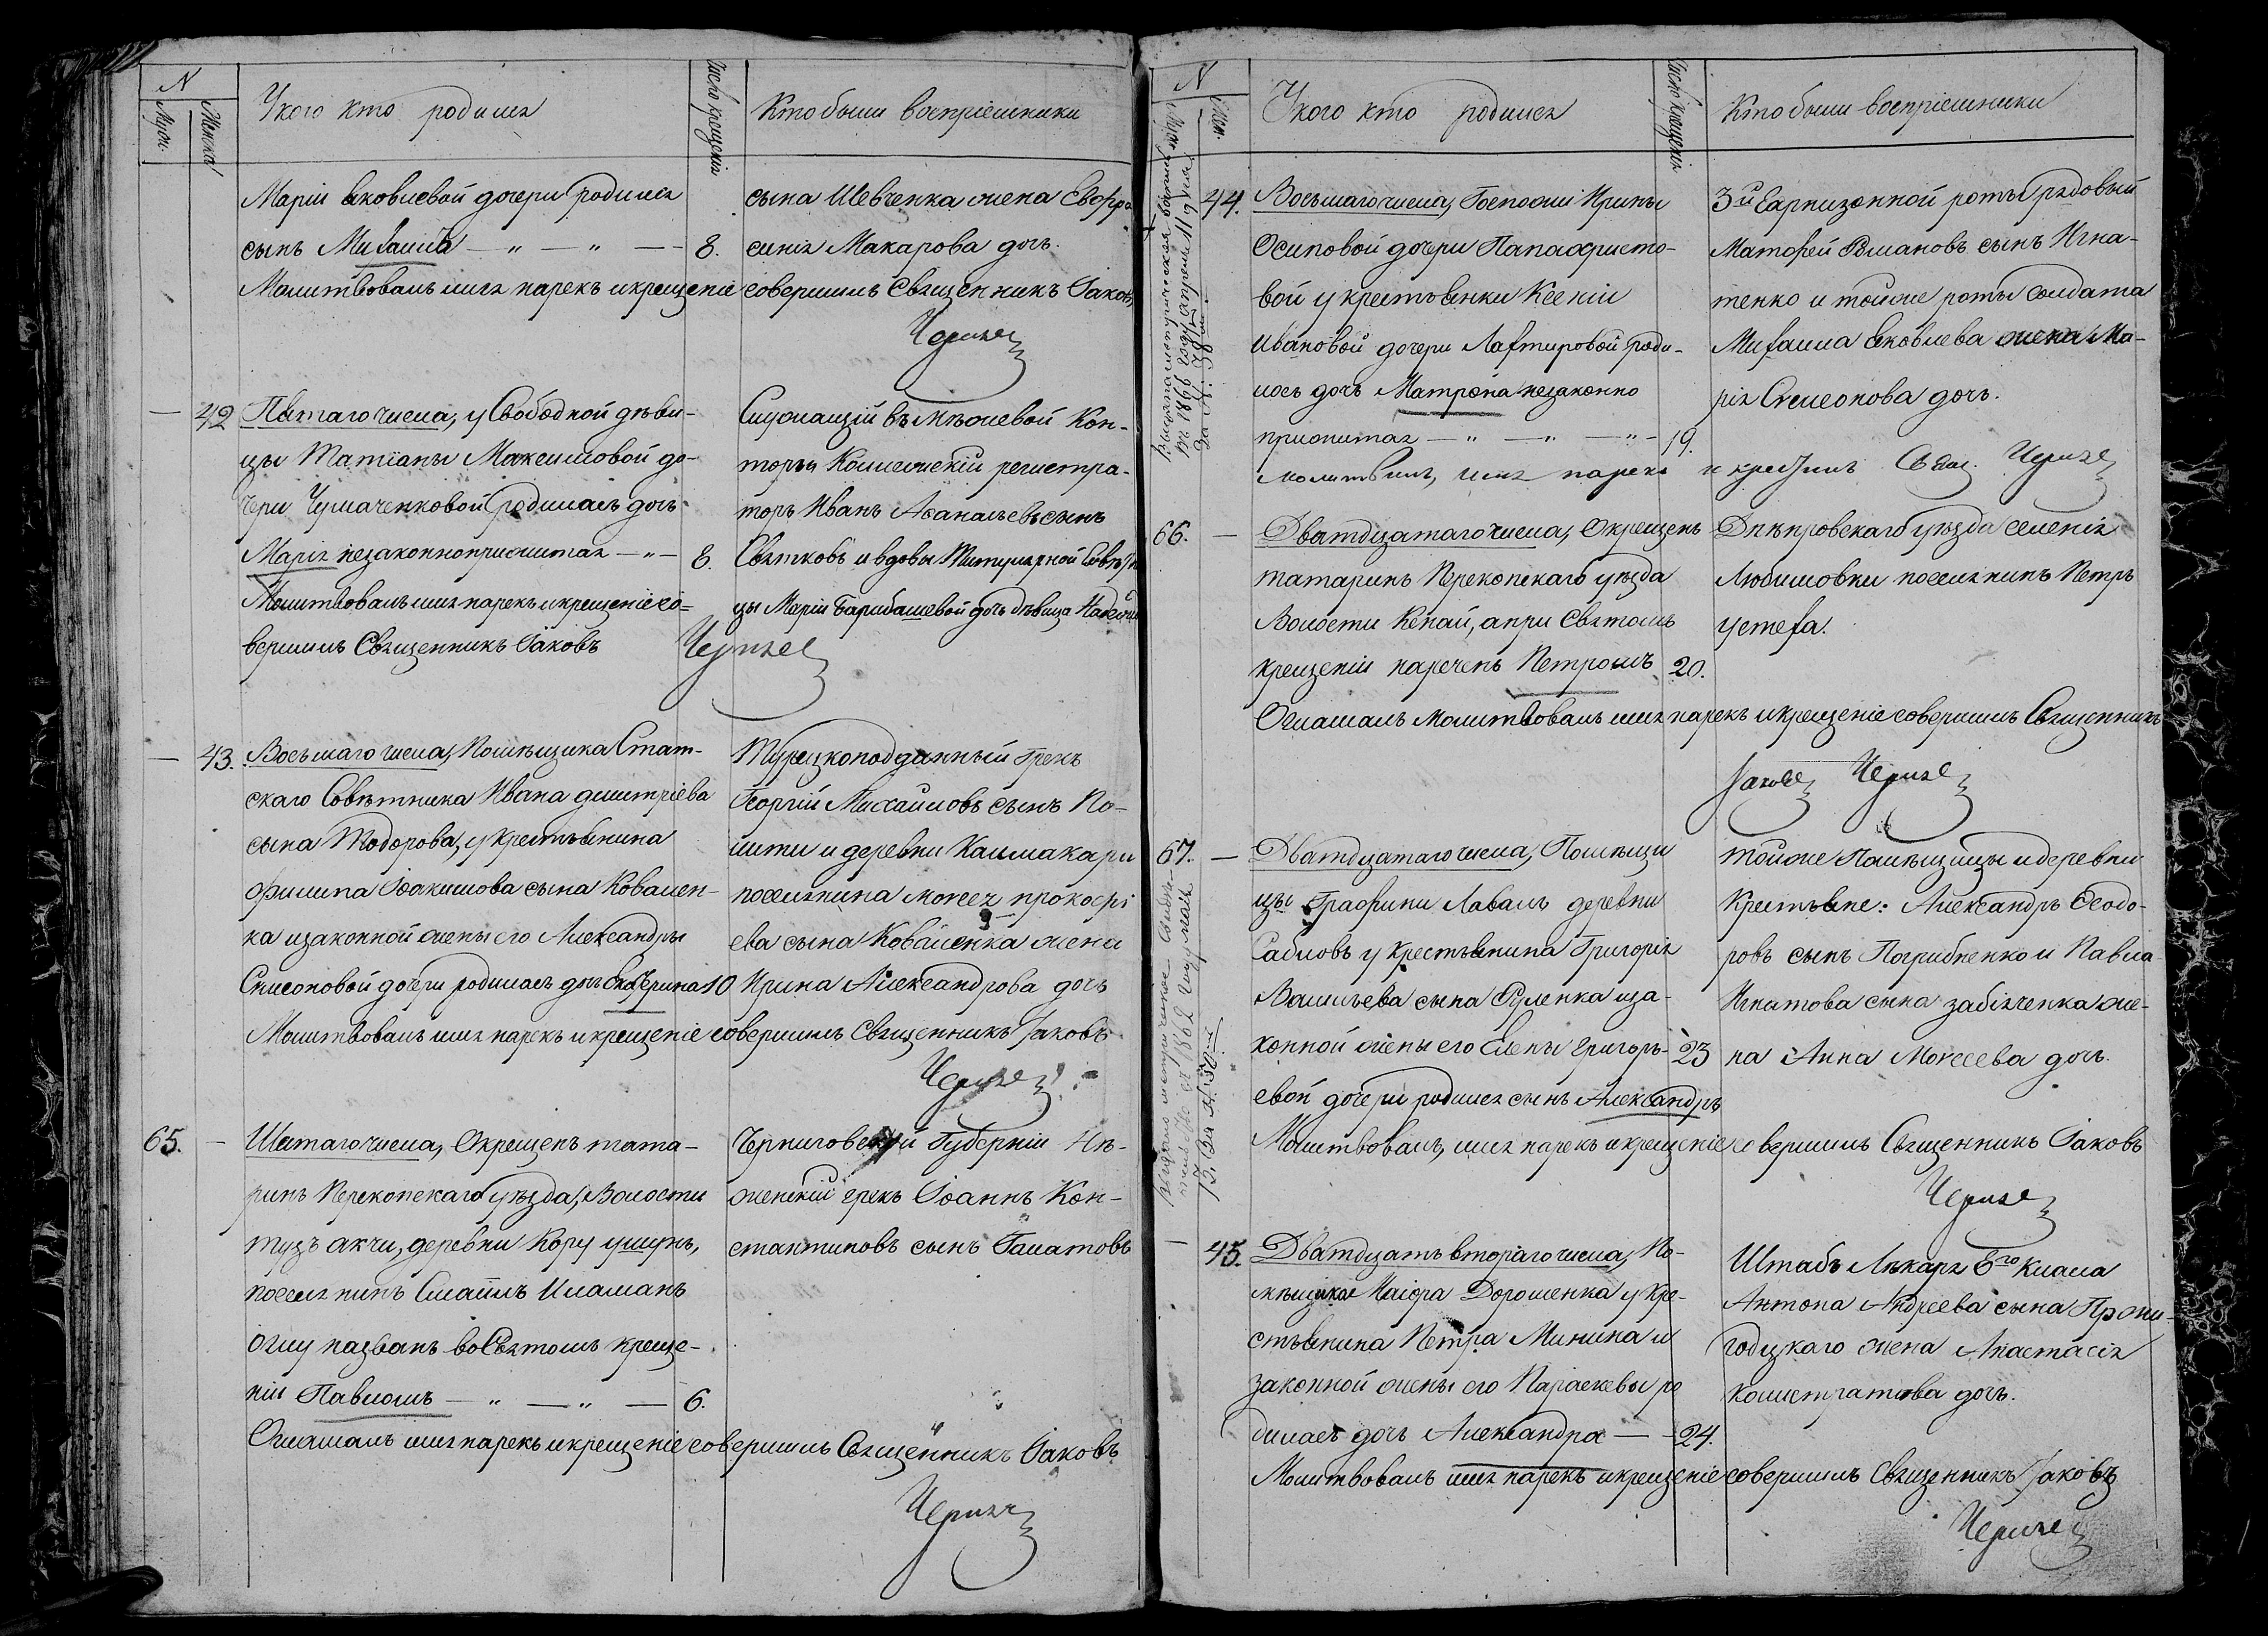 N
Муж. Женска
У кого кто родился
Число крещенія
Кто были воспріемники
Маріи Яковлевой дочери родился
сынъ Михаилъ — „ — „ — 8.
Молитвовалъ имя нарекъ и крещеніе совершилъ Священникъ Іаковъ
сына Шевченка жена Евфро
синія Макарова дочь.
— 42 Пятаго числа, у Свободной дѣви-
цы Татіаны Максимовой до-
чери Чумаченковой родилась дочь
Марія незаконноприжитая — „ — 8.
Молитвовалъ имя нарекъ и крещеніе со-
вершилъ Священникъ Іаковъ
Служащій въ Межевой Кон-
торы Коллежскій регистра-
торъ Иванъ Аѳанасьевъ сынъ
Святковъ и вдовы Титулярной Совѣтн
цы Маріи Барабашевой дочь дѣвица
— 43. Восьмаго числа, Помѣщика Стат-
скаго Совѣтника Ивана Дмитріева
сына Тодорова, у крестьянина
Филипа Іоакимова сына Ковален-
ка и законной жены его Александры
Симеоновой дочери родилась дочь Екатерина 10
Молитвовалъ имя нарекъ и крещеніе совершилъ Священникъ Іаковъ
Турецкоподданный Грекъ
Георгій Михайловъ сынъ По-
лити и деревни Каимакари
поселянина Моисея Прокофі
ева сына Коваленка жена
Ирина Александрова дочь
65. — Шестаго числа, Окрещенъ тата-
ринъ Перекопскаго уѣзда, Волости
Тузъ акчи, деревни Кору ушунъ,
поселянинъ Смаилъ Иламанъ
оглу названъ во Святомъ креще-
ніи Павломъ — „ — „ — 6.
Оглашалъ имя нарекъ и крещеніе совершилъ Священникъ Іаковъ
Черниговской Губерніи Нѣ-
жинскій грекъ Іоаннъ Кон-
стантиновъ сынъ Галатовъ
N
Муж. Жен.
У кого кто родился
Число крещенія
Кто были воспріемники
44. Восьмаго числа, Госпожи Ирины
Осиповой дочери Папахристо-
вой у крестьянки Ксеніи
Ивановой дочери Лахтировой роди-
лась дочь Матрона незаконно
прижитая — „ — „ — „ — 19.
молитвилъ, имя нарекъ и крестилъ Свящ.
3й Гарнизонной роты рядовый
Матфей Романовъ сынъ Игна-
тенко и тойже роты солдата
Михаила Яковлева жена Ма-
рія Симеонова дочь.
66. — Дватдцатаго числа, Окрещенъ
татаринъ Перекопскаго уѣзда
Волости Кепай, а при Святомъ
крещеніи нареченъ Петромъ 20.
Оглашалъ молитвовалъ имя нарекъ и крещеніе совершилъ Священникъ
Іаковъ
Днѣпровскаго уѣзда селенія
Любимовки поселянинъ Петръ
Устеха.
67. — Дватдцатаго числа, Помѣщи
цы Графини Лаваль деревни
Сабловъ у крестьянина Григорія
Васильева сына Руленка и за-
конной жены его Елены Григорь- 23
евой дочери родился сынъ Александръ
Молитвовалъ, имя нарекъ и крещеніе совершилъ Священникъ Іаковъ
тойже Помѣщицы и деревни
Крестьяне: Александръ Ѳеодо-
ровъ сынъ Погрибненко и Павла
Игнатова сына Забіяченка же-
на Анна Моисеева дочь.
— 45. Дватдцать втораго числа, По-
мѣщика Маіора Дорошенка у кре-
стьянина Петра Минина и
законной жены его Параскевы ро
дилась дочь Александра — 24.
Молитвовалъ имя нарекъ и крещеніе совершилъ Священникъ Іаковъ
Штабъ Лѣкаря 6го класса
Антона Андреева сына
жена Анастасія
Калистратова дочь.